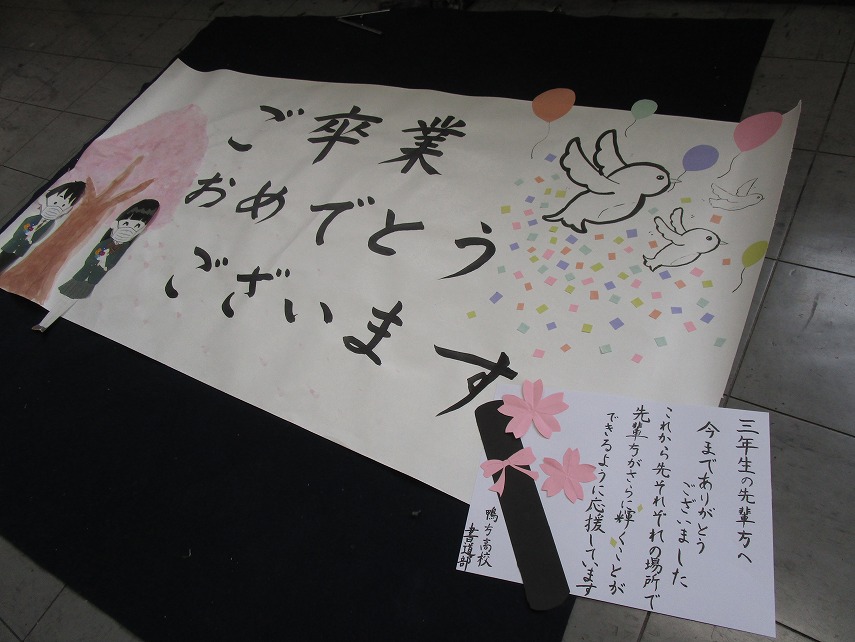 ご卒業
おめでとう
ございます
三年生の先輩方へ
今までありがとう
ございました
これから先それぞれの場所で
先輩方がさらに輝くことが
できるように応援しています
鴨方高校
書道部